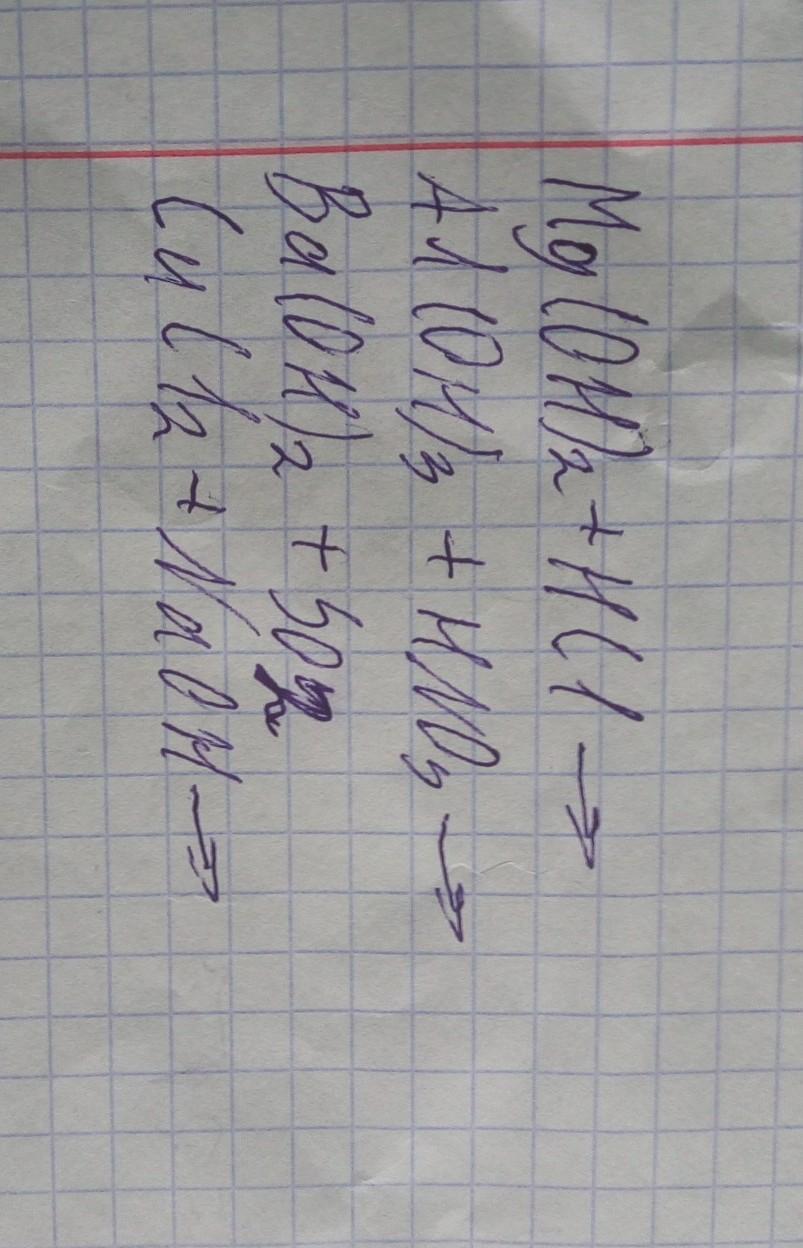 Mg(OH)2 + HCl →
Al(OH)3 + HNO3 →
Ba(OH)2 + SO2
CuCl2 + NaOH →